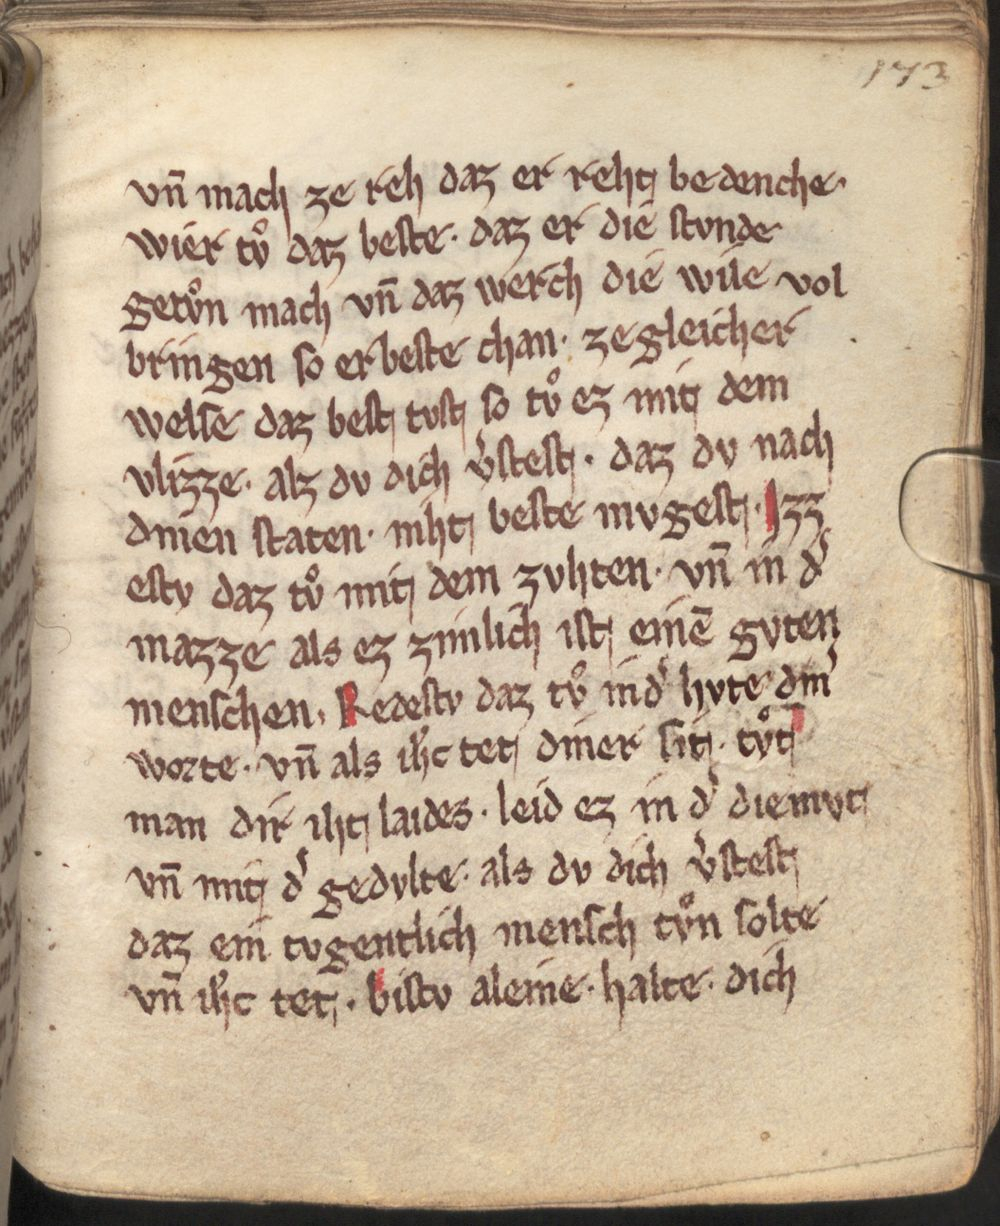 173
vn̄ mach ze reh daz er reht bedenche·
wier tvͦ daz beste· daz er die stvnde
getvͦn mach vn̄ daz werch die wile vol
bringen so er beste chan· ze gleicher
welse daz best tvst so tvͦ ez mit dem
vlizze· alz dv dich v̾stest· daz dv nach
dinen staten· niht beste mvgest· Izz
estv daz tvͦ mit dem zvhten· vn̄ in d̾
mazze als ez zimlich ist einē gvten
menschen· Redestv daz tvͦ in d̾ hvte din̾
worte· vn̄ als ih̾c tet diner sit· tvͦt
man dir iht laides· leid ez in d̾ diemvt
vn̄ mit d̾ gedvlte· als dv dich v̾stest
daz ein tvgentlich mensch tvͦn solte
vn̄ ih̾c tet· bistv aleine· halte· dich